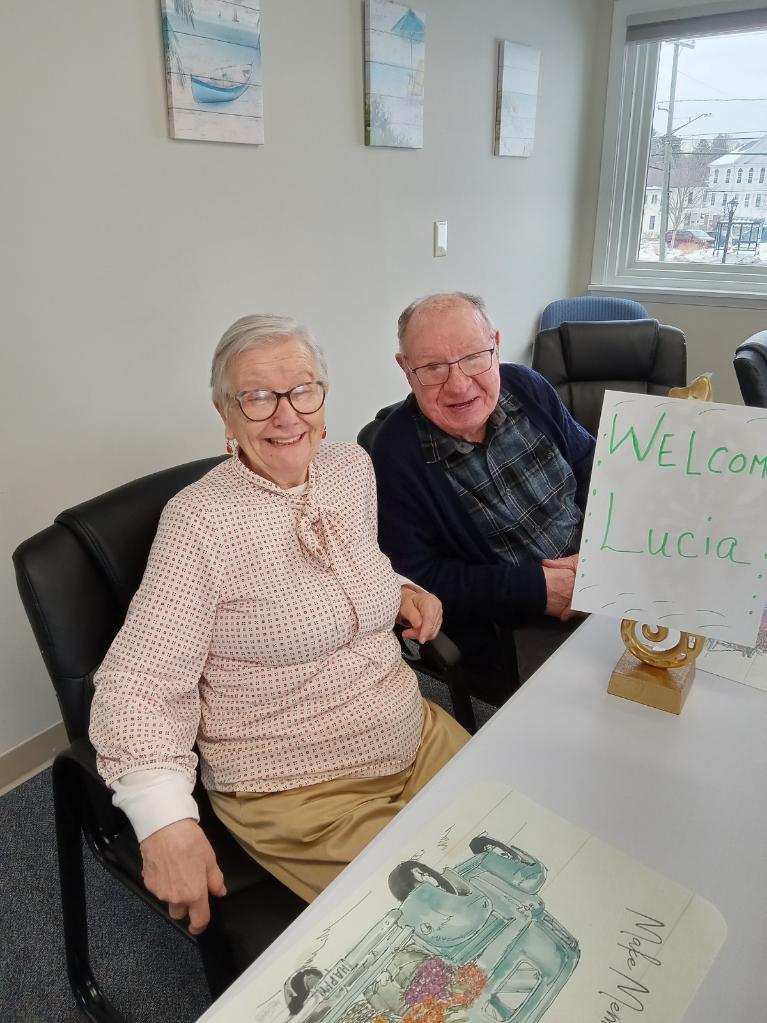 WELCOM
Lucia
HAPPY
Make Mem